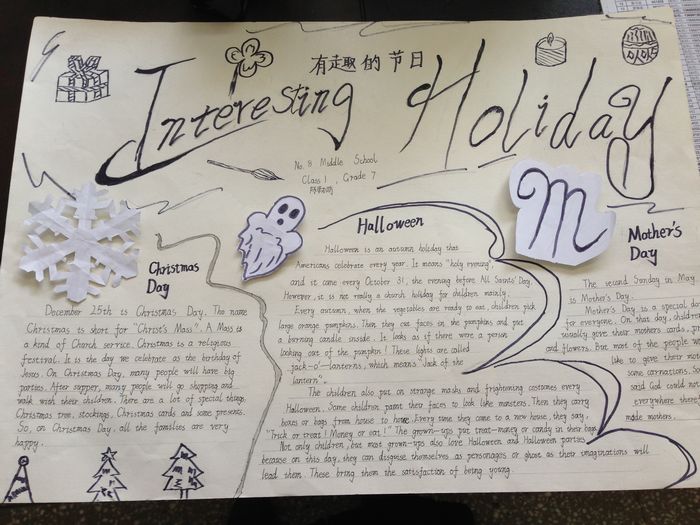 有趣的节日
Interesting Holiday
No. 8 Middle School
Class 1 , Grade 7
Christmas
Day
December 25th is Christmas Day. The name
Christmas is short for "Christ's Mass". A Mass is
a kind of Church service. Christmas is a religious
festival. It is the day we celebrate as the birthday of
Jesus. On Christmas Day, many people will have big
parties. After supper, many people will go shopping and
walk with their children. There are a lot of special things,
Christmas tree, stockings, Christmas cards and some presents.
So, on Christmas Day, all the families are very
happy.
Halloween
Halloween is an autumn holiday that
Americans celebrate every year. It means "holy evening",
and it came every October 31, the evening before All Saints' Day.
However, it is not really a church holiday for children mainly.
Every autumn, when the vegetables are ready to eat, children pick
large orange pumpkins. Then they cut faces in the pumpkins and put
a burning candle inside. It looks as if there were a person
looking out of the pumpkin! These lights are called
jack-o'-lanterns, which means "Jack of the
lantern".
The children also put on strange masks and frightening costumes every
Halloween. Some children paint their faces to look like monsters. Then they carry
boxes or bags from house to house. Every time they come to a new house, they say,
"Trick or treat! Money or eat!" The grown-ups put treat-money or candy in their bags.
Not only children, but most grown-ups also love Halloween and Halloween parties
because on this day, they can disguise themselves as personages or ghost as their imaginations will
lead them. These bring them the satisfaction of being young.
m
Mother's
Day
The second Sunday in May
is Mother's Day.
Mother's Day is a special
for everyone. On that day, children
usually give their mothers cards,
and flowers. But most of the people
like to give their
some carnations. So
said God could
everywhere
made mothers.